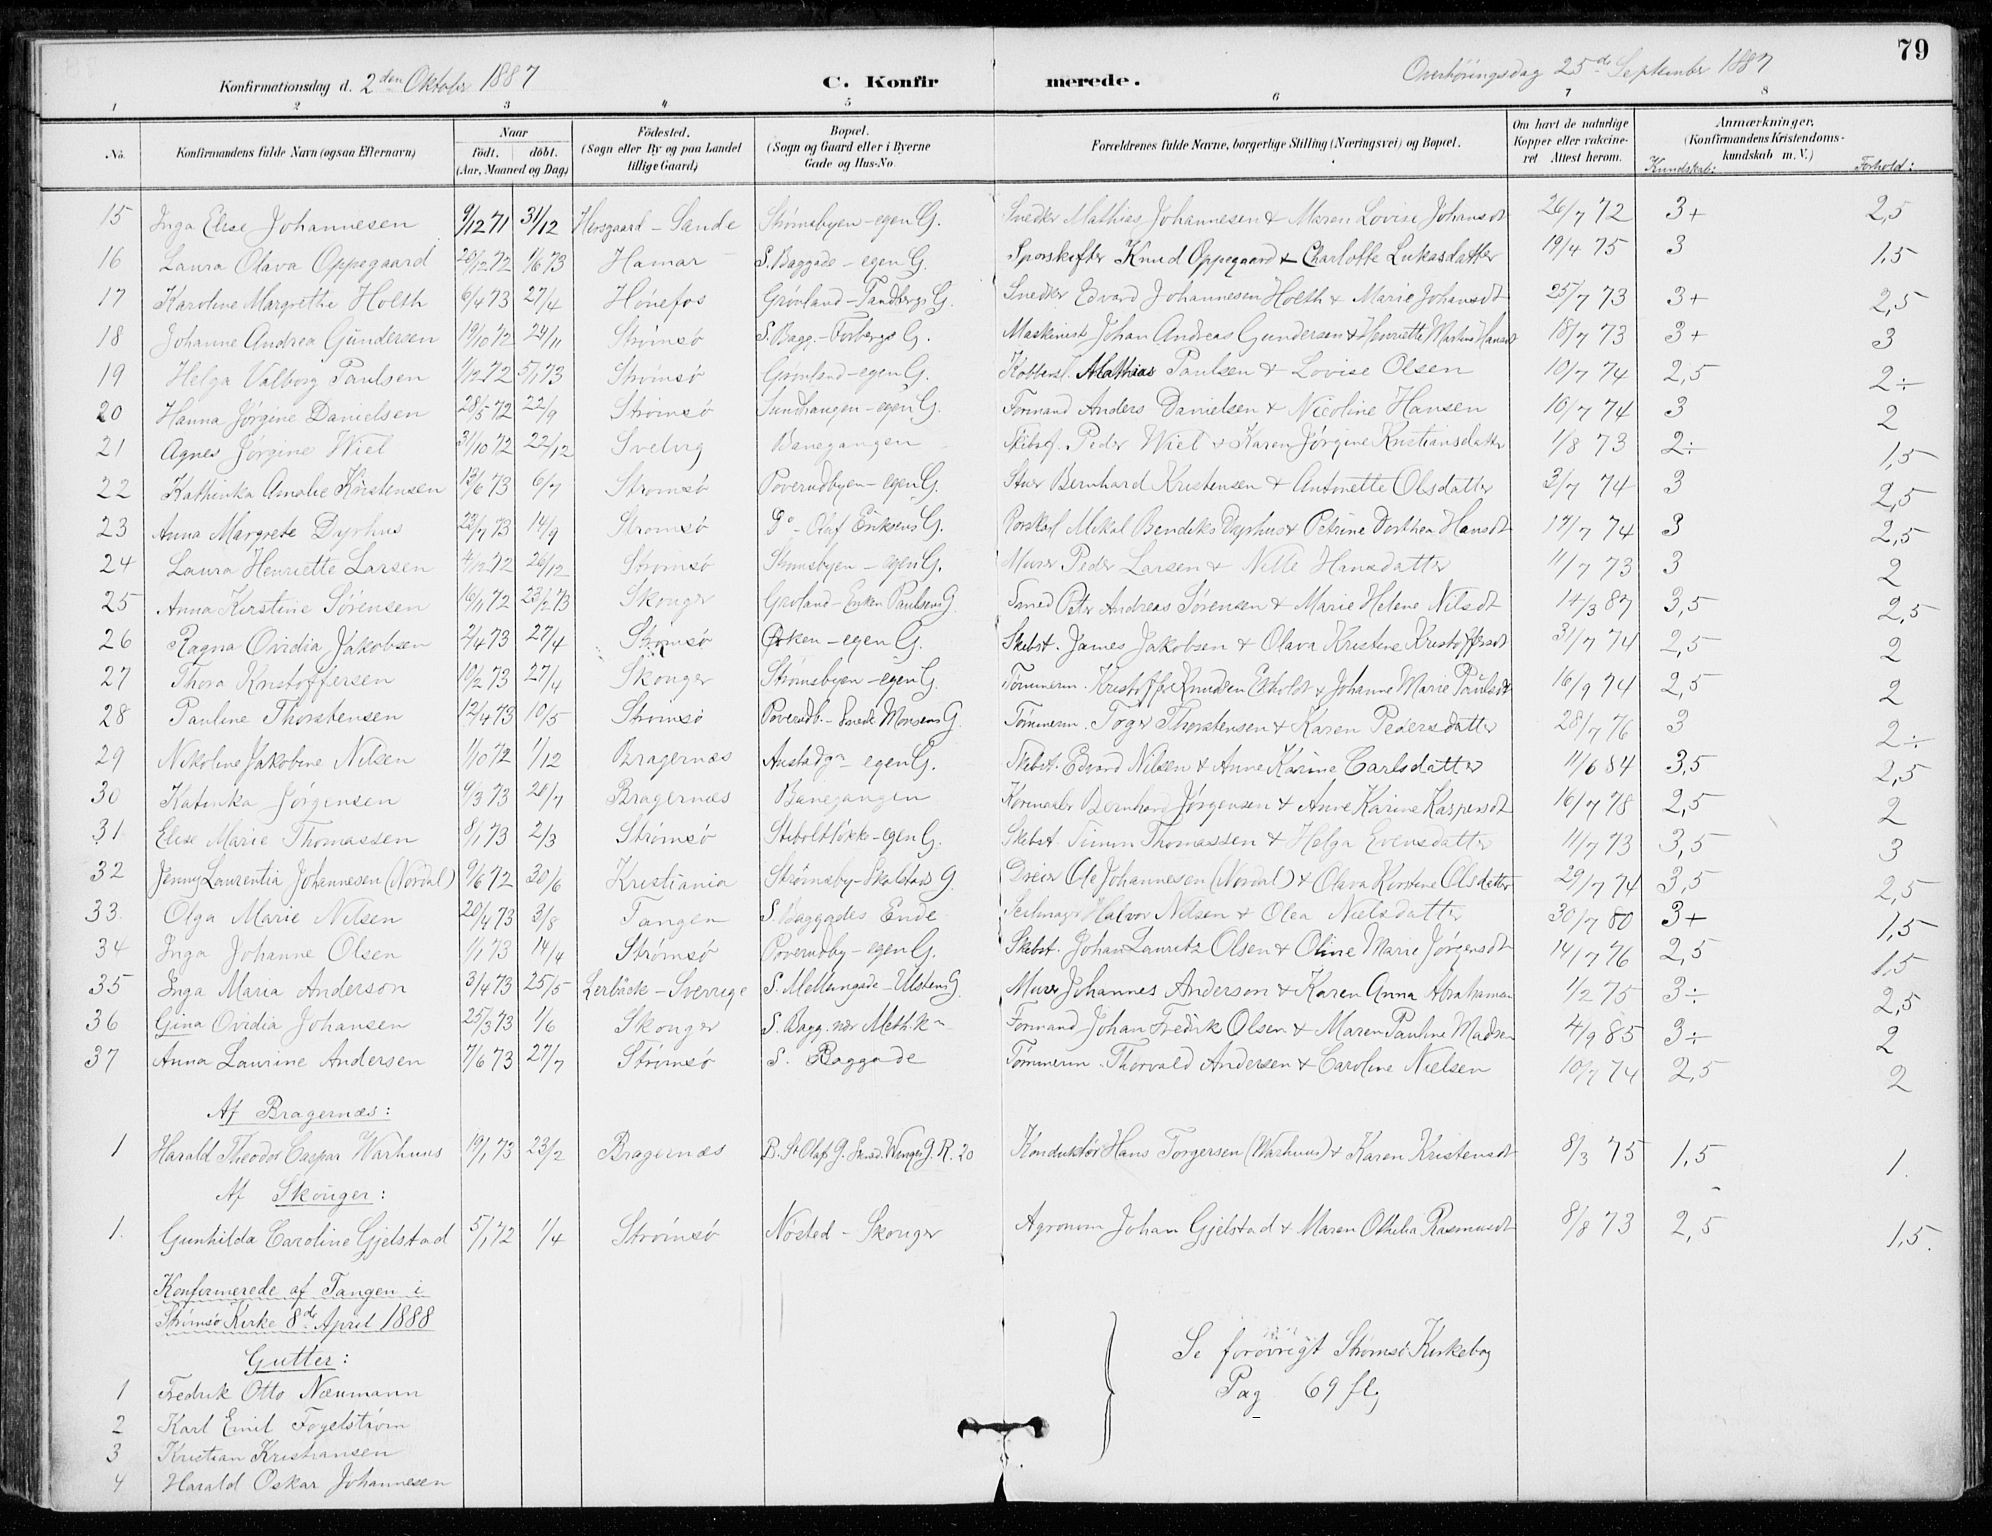 79
Konfirmationsdag d. 2den Oktober 1887 C. Konfirmerede. Overhöringsdag 25de September 1887
1 2 3 4 5 6 7 8
No. Konfirmandens fulde Navn (ogsaa Efternavn) Naar födt. döbt. (Aar, Maaned og Dag) Födested. (Sogn eller By og paa Landet tillige Gaard) Bopæl. (Sogn og Gaard eller i Byerne Gade og Hus-No. Forældrenes fulde Navne, borgerlige Stilling (Næringsvei) og Bopæl. Om havt de naturlige Kopper eller vakcineret Attest herom. Anmærkninger, (Konfirmandens Kristendomskundskab m. V.) Kundskab: Forhold:
15 Inga Elise Johannesen 9/12 71 31/12 Horsgaard - Sande Strömsbyen - egen G. Snedker Mathias Johannesen & Maren Lovise Johansdt 26/7 72 3+ 2,5
16 Laura Olava Oppegaard 26/12 72 1/6 73 Hamar S. Baggade - egen G. Sporskifter Knud Oppegaard & Charlotte Lukasdatter 19/4 75 3 1,5
17 Karoline Margrethe Holth 6/4 73 27/4 Hönefos Grönland - Tandbergs G. Snedker Edvard Johannesen Holth & Marie Johansdt 25/7 73 3+ 2,5
18 Johanne Andrea Gundersen 19/10 72 24/11 Strömsö S. Bagg. - Forbergs G. Maskinist Johan Andreas Gundersen & Henriette Martine Hansdt 18/7 73 3+ 3
19 Helga Valborg Paulsen 1/12 72 5/1 73 Strömsö Grönland - egen G. Kobbersl. Mathias Paulsen & Lovise Olsen 10/7 74 2,5 2÷
20 Hanna Jørgine Danielsen 28/5 72 22/9 Strömsö Sundhaugen - egen G. Formand Anders Danielsen & Nicoline Hansen 10/7 74 3 2
21 Agnes Jørgine Wiel 31/10 72 22/12 Svelvig Banegangen Skibsf. Peder Wiel & Karen Jørgine Kristiansdatter 1/8 73 2÷ 1,5
22 Kathinka Amalie Kristensen 13/6 73 6/7 Strömsö Poverudbyen - egen G. Stuer Bernhard Kristensen & Antonette Olsdatter 3/7 74 3 2,5
23 Anna Margrete Dyrhus 23/7 73 14/9 Strömsö Do - Olaf Eriksens G. Mikal Bendiks Dyrhus & Petrine Dorthea Hansdt 17/7 74 3 2,5
24 Laura Henriette Larsen 4/12 72 26/12 Strömsö Strömsbyen - egen G. Murer Peder Larsen & Nille Hansdatter 11/7 73 3 2
25 Anna Kirstine Sörensen 16/1 72 23/2 73 Skouger Grönland - Enken Paulsens G. Smed Peter Andreas Sörensen & Marie Helene Nilsdt 14/3 87 3,5 2,5
26 Ragna Ovidia Jakobsen 2/4 73 27/4 Strömsö Orken - egen G. Skibst. James Jakobsen & Olava Kristine Kristoffersdt 31/7 74 2,5 2
27 Thora Kristoffersen 10/2 73 27/4 Skouger Strömsbyen - egen G. Tömmerm. Kristoffer Knudsen & Johanne Marie Paulsdt 16/9 74 2,5 2
28 Pauline Thorstensen 12/4 73 10/5 Strömsö Poverudb. - Smed Monsens G. Tömmerm. Toger Thorstensen & Karen Pedersdatter 28/7 76 3 2÷
29 Nikoline Jakobine Nilsen 1/10 72 1/12 Bragernæs Austadgn - egen G. Skibst. Edvard Nilsen & Anne Karine Carlsdatter 11/6 84 3,5 2,5
30 Katinka Jørgensen 9/3 73 20/7 Bragernæs Banegangen Bernhard Jørgensen & Anne Karine Kaspersdt 16/7 78 2,5 2
31 Elise Marie Thomassen 8/1 73 2/3 Strömsö Stiboltlökke - egen G. Skibst. Simon Thomassen & Helga Evensdatter 11/7 73 3,5 3
32 Jenny Laurentia Johannesen (Nordal) 9/6 72 30/6 Kristiania Strömsby - Skalstads G. Dreier Ole Johannesen (Nordal) & Olava Kirstine Olsdatter 29/7 74 3,5 2,5
33 Olga Marie Nilsen 20/4 73 3/8 Tangen S. Baggades Ende Seilmager Halvor Nilsen & Olea Nielsdatter 30/7 80 3+ 1,5
34 Inga Johanne Olsen 1/1 73 14/4 Strömsö Poverudby - egen G. Skibst. Johan Lauritz Olsen & Oline Marie Jørgensdt 14/7 76 2,5 1,5
35 Inga Maria Anderson 3/4 73 25/5 Lerbäck - Sverrige S. Mellemgade - Ulstens G. Murer Johannes Anderson & Karen Anna Abrahamsen 1/2 75 3÷ 2,5
36 Gina Ovidia Johansen 25/3 73 1/6 Skouger S. Bagg. nær Meth.kn Formand Johan Fredrik Olsen & Maren Pauline Madsen 4/9 85 3÷ 2
37 Anna Laurine Andersen 7/6 73 27/7 Strömsö S. Baggade Tömmerm. Thorvald Andersen & Caroline Nielsen 10/7 74 2,5 2
Af Bragernæs:
1 Harald Theodor Caspar Warhuus 19/1 73 23/2 Bragernæs B. St Olafs G. R. 20 Konduktör Hans Torgersen (Warhuus) & Karen Kristensdt 8/3 75 1,5 1.
Af Skouger:
1. Gunhilda Caroline Gjelstad 5/1 72 1/4 Strömsö Nösted - Skouger Agronom Johan Gjelstad & Maren Othilia Rasmusdt 8/8 73 2,5 1,5.
Konfirmerede af Tangen i
Strömsö Kirke 8de April 1888
Gutter:
Se forövrigt Strömsö Kirkebog
Pag 69 flg
1 Fredrik Otto Næumann
2 Karl Emil Fogelström
3 Kristian Kristiansen
4 Harald Oskar Johannesen